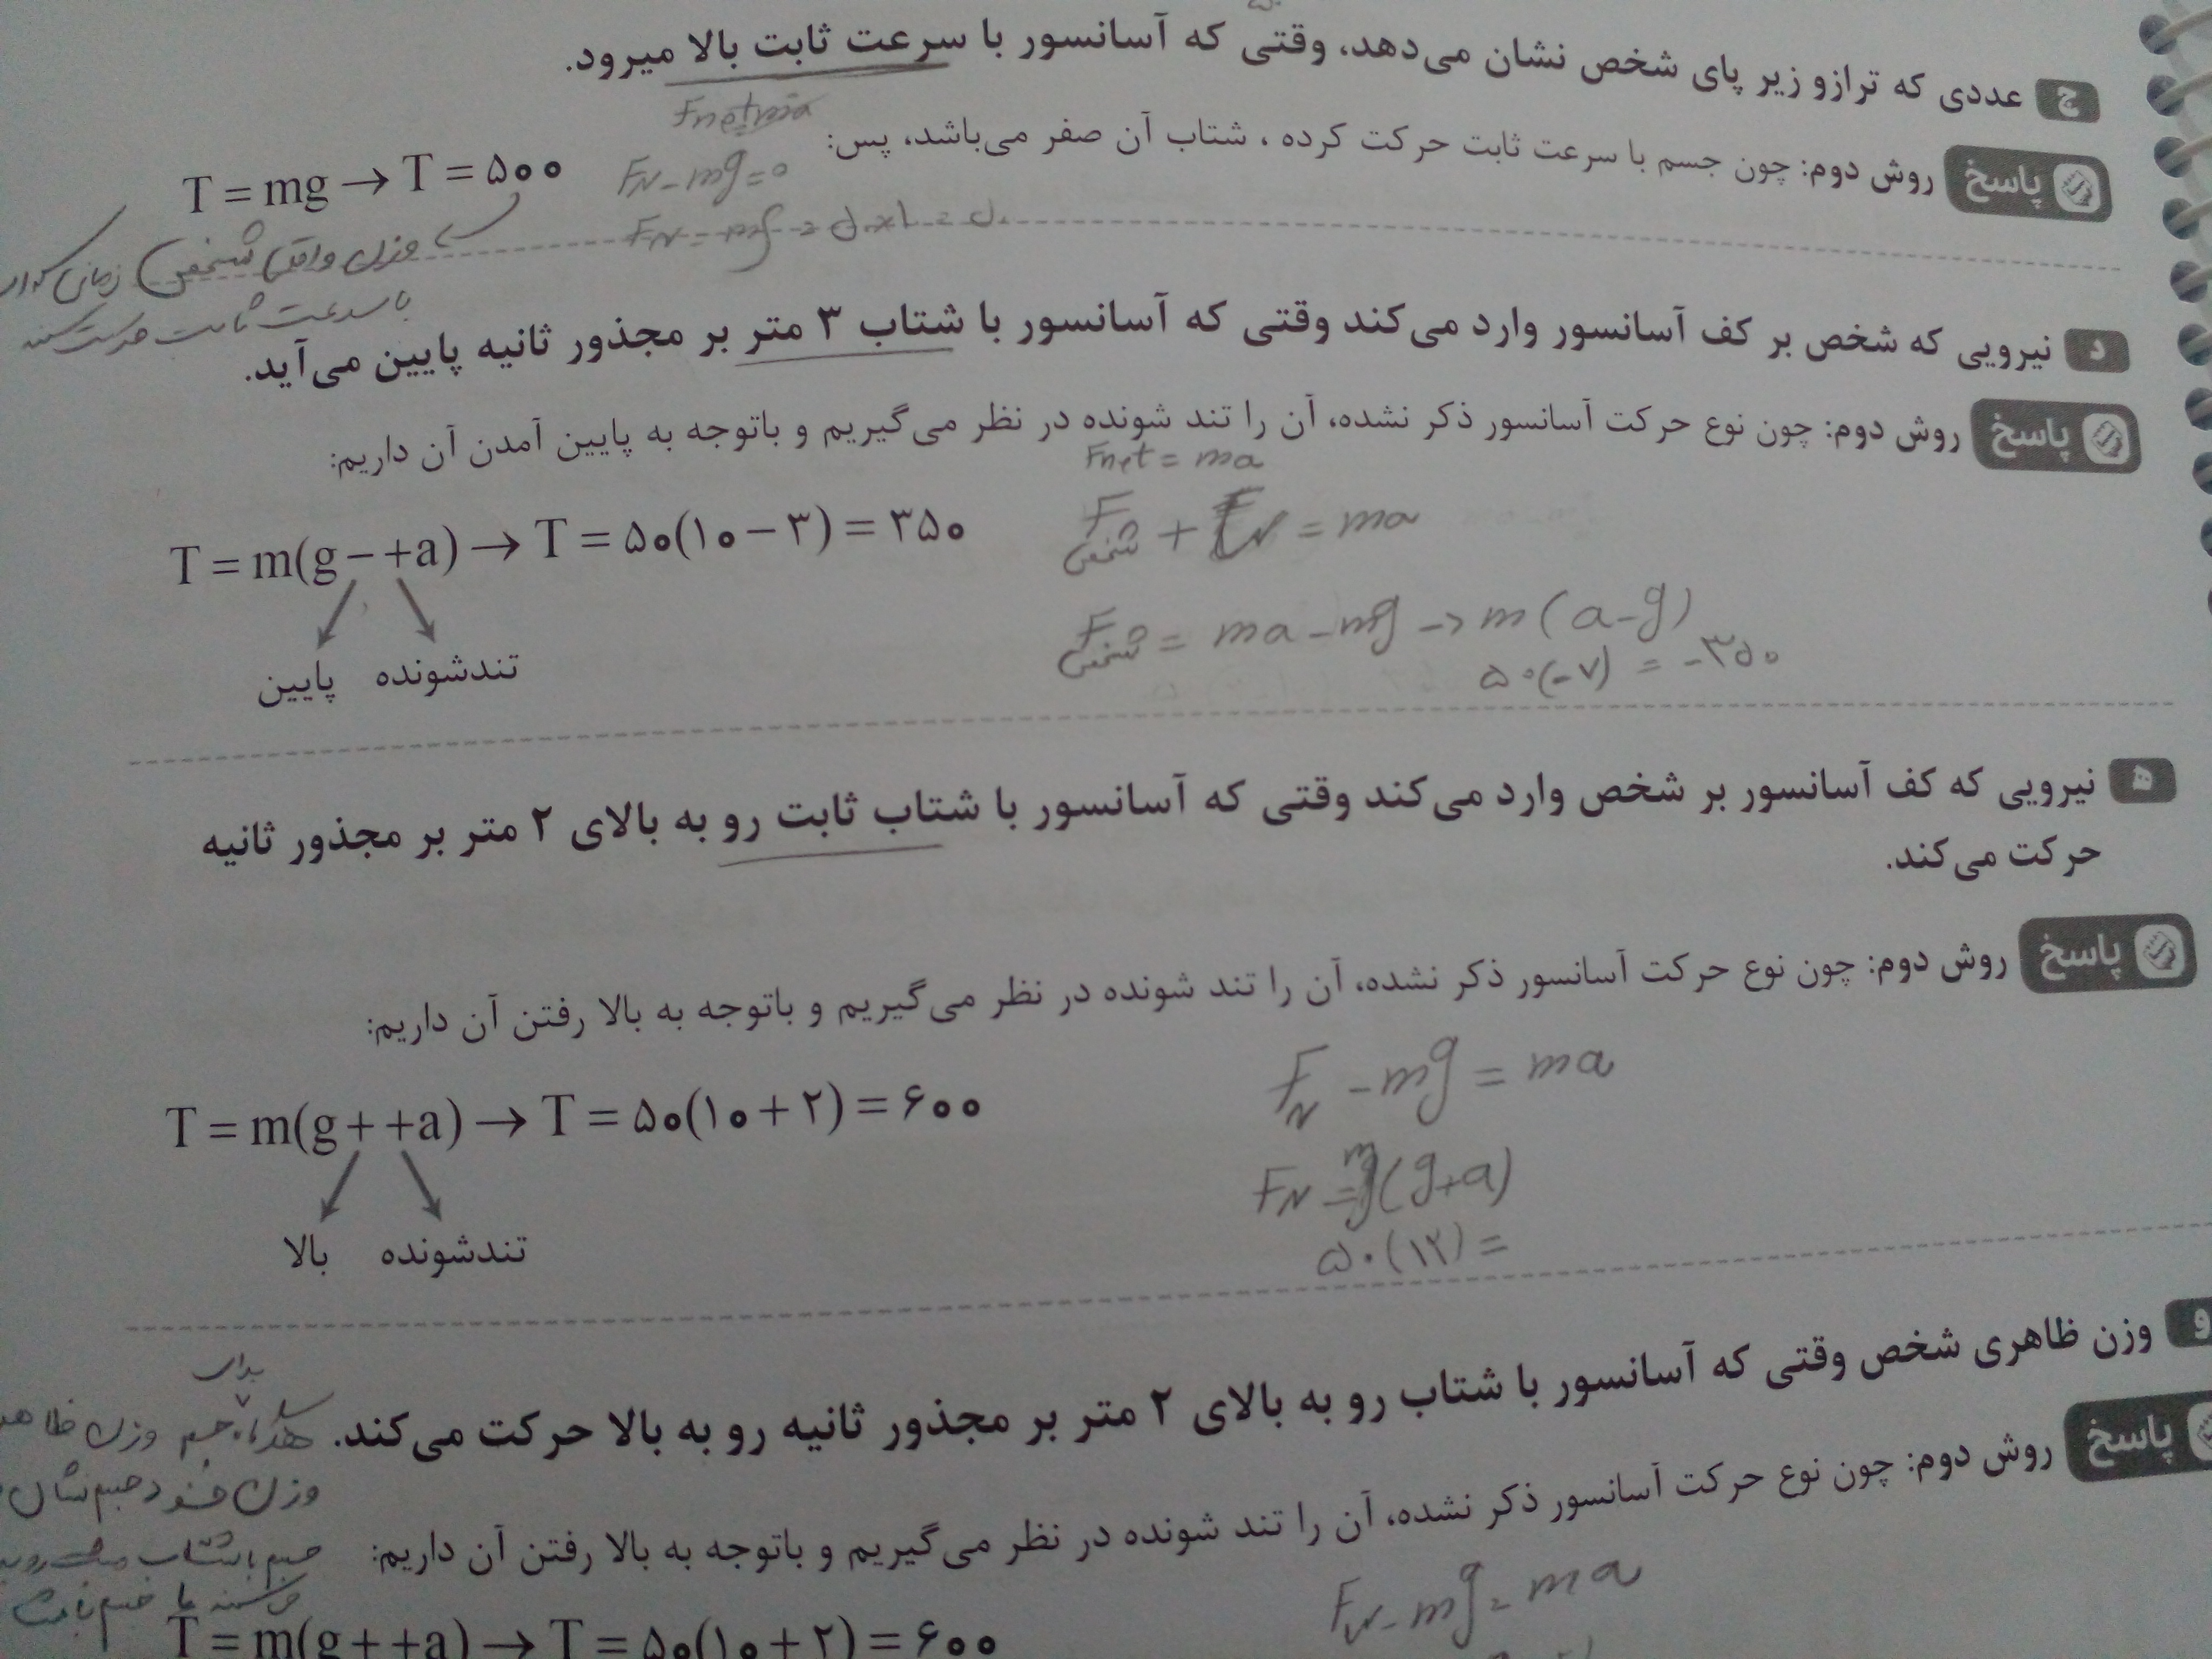 ج عددی که ترازو زیر پای شخص نشان می‌دهد، وقتی که آسانسور با سرعت ثابت بالا میرود.
Fnet=ma
پاسخ روش دوم: چون جسم با سرعت ثابت حرکت کرده ، شتاب آن صفر می‌باشد، پس:
T = mg → T = ۵۰۰
FN - mg = ۰
FN = mg = ۵۰×۱۰ = ۵۰۰
وزن واقعی شخص زمانی که
با سرعت ثابت حرکت کند
د نیرویی که شخص بر کف آسانسور وارد می‌کند وقتی که آسانسور با شتاب ۳ متر بر مجذور ثانیه پایین می‌آید.
پاسخ روش دوم: چون نوع حرکت آسانسور ذکر نشده، آن را تند شونده در نظر می‌گیریم و باتوجه به پایین آمدن آن داریم:
Fnet = ma
T = m(g − +a) → T = ۵۰(۱۰ − ۳) = ۳۵۰
F شخص + FN = ma
پایین تندشونده
F شخص = ma - mg → m(a-g)
۵۰(-۷) = -۳۵۰
ه نیرویی که کف آسانسور بر شخص وارد می‌کند وقتی که آسانسور با شتاب ثابت رو به بالای ۲ متر بر مجذور ثانیه
حرکت می‌کند.
پاسخ روش دوم: چون نوع حرکت آسانسور ذکر نشده، آن را تند شونده در نظر می‌گیریم و باتوجه به بالا رفتن آن داریم:
T = m(g + +a) → T = ۵۰(۱۰ + ۲) = ۶۰۰
FN - mg = ma
بالا تندشونده
FN = m(g+a)
۵۰(۱۲) =
و وزن ظاهری شخص وقتی که آسانسور با شتاب رو به بالای ۲ متر بر مجذور ثانیه رو به بالا حرکت می‌کند.
جسم وزن
وزن خود جسم نشان
جسم با شتاب
پاسخ روش دوم: چون نوع حرکت آسانسور ذکر نشده، آن را تند شونده در نظر می‌گیریم و باتوجه به بالا رفتن آن داریم:
T = m(g + +a) → T = ۵۰(۱۰ + ۲) = ۶۰۰
FN - mg = ma